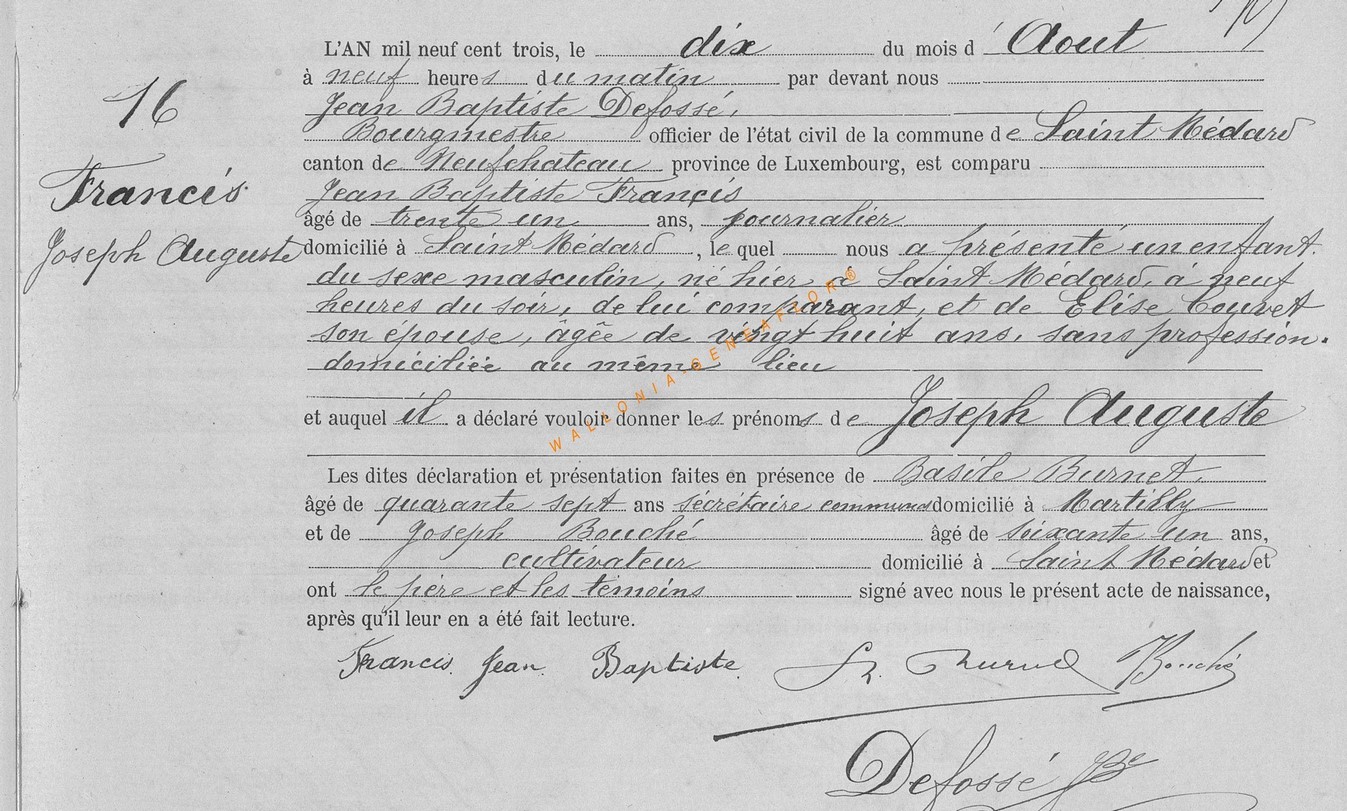 16
Francis
Joseph Auguste
L'AN mil neuf cent trois, le dix du mois d' Aout
à neuf heures du matin par devant nous
Jean Baptiste Defossé,
Bourgmestre officier de l'état civil de la commune de Saint Médard
canton de Neufchateau province de Luxembourg, est comparu
Jean Baptiste Francis
âgé de trente un ans, journalier
domicilié à Saint Médard, le quel nous a présenté un enfant.
du sexe masculin, né hier à Saint Médard, à neuf
heures du soir, de lui comparant, et de Elise Couvet
son épouse, agée de vingt huit ans, sans profession.
domiciliée au même lieu
et auquel il a déclaré vouloir donner les prénoms de Joseph Auguste
Les dites déclaration et présentation faites en présence de Basile Burnet,
âgé de quarante sept ans sécrétaire communal domicilié à Martilly
et de Joseph Bouché âgé de soixante un ans,
cultivateur domicilié à Saint Médard et
ont le père et les témoins signé avec nous le présent acte de naissance,
après qu'il leur en a été fait lecture.
Francis Jean Baptiste Burnet JBouché
Defossé JBte
WALLONIA-GENEAFLOR®